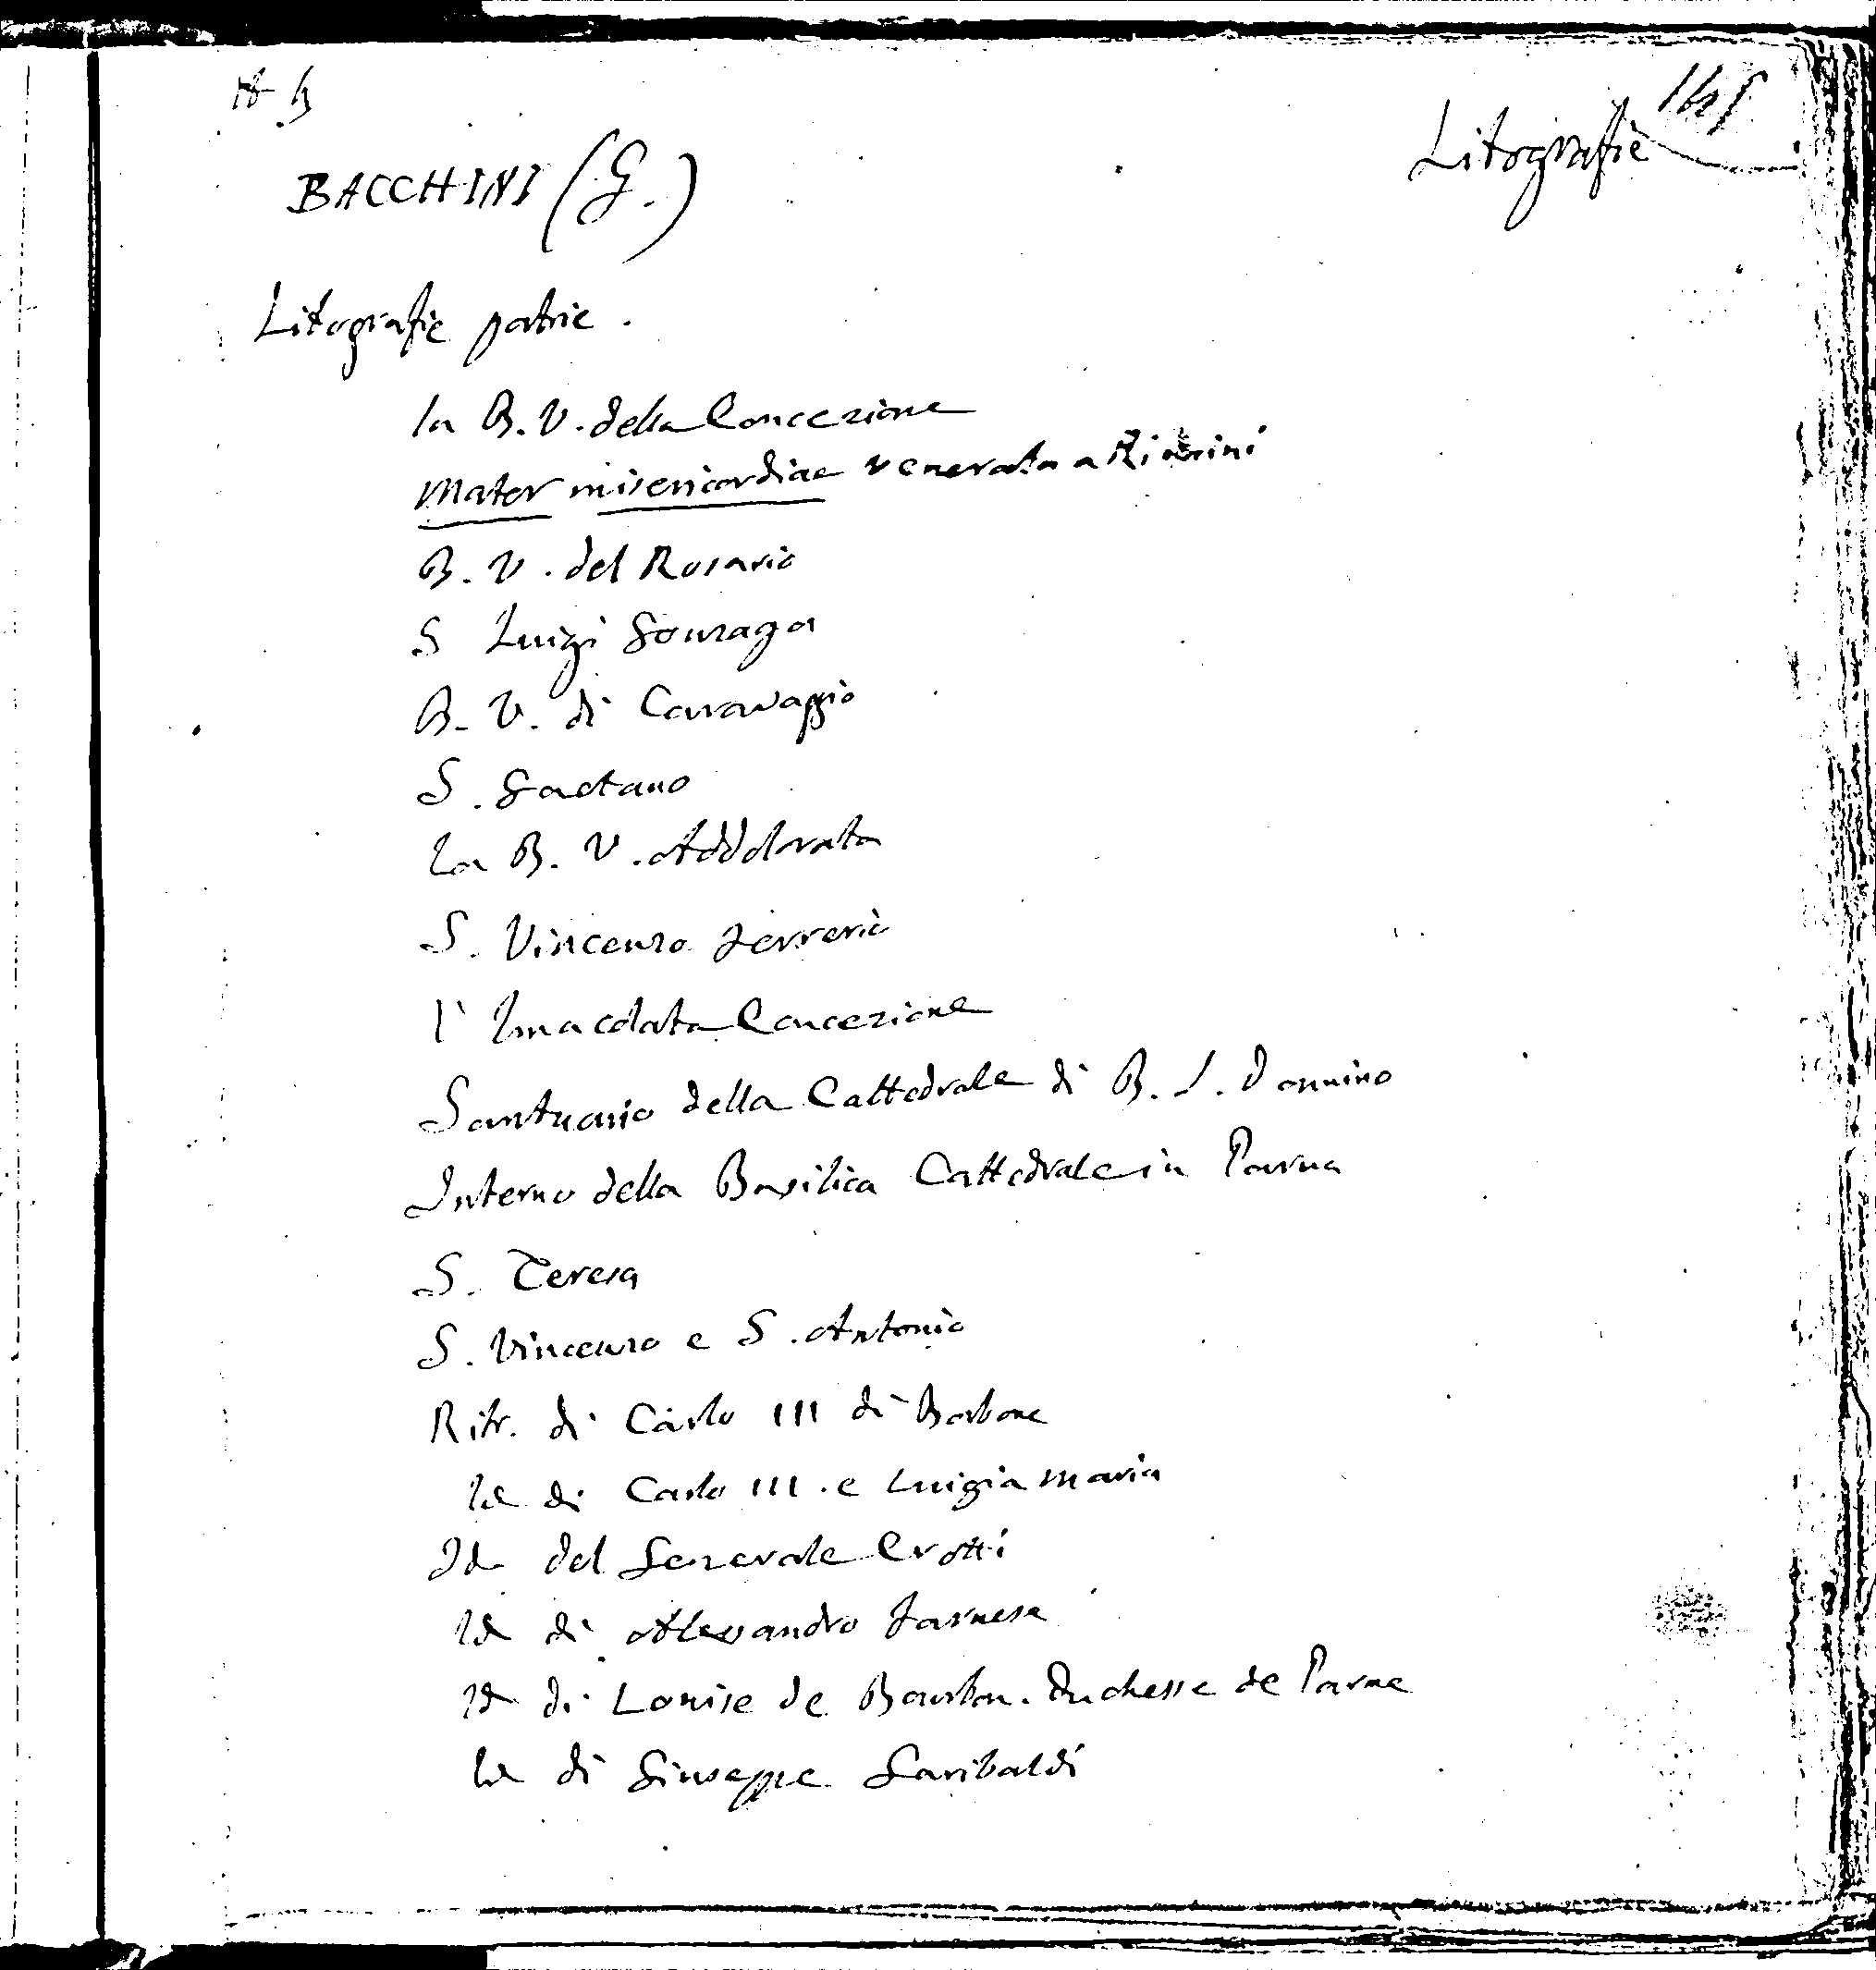 Litografie
BACCHINI (G.)
Litografie patrie.
la B. V. della Concezione
Mater misericordiae venerata a Rimini
B. V. del Rosario
S Luigi Gonzaga
B. V. di Caravaggio
S. Gaetano
la B. V. Addolorata
S. Vincenzo Ferreri
l' Imacolata Concezione
Santuario della Cattedrale di B. S. Donnino
Interno della Basilica Cattedrale in Parma
S. Teresa
S. Vincenzo e S. Antonio
Ritr. di Carlo III di Borbone
Id di Carlo III. e Luigia Maria
Id del Generale Crotti
Id di Alessandro Farnese
Id di Louise de Bourbon. Duchesse de Parme
Id di Giuseppe Garibaldi